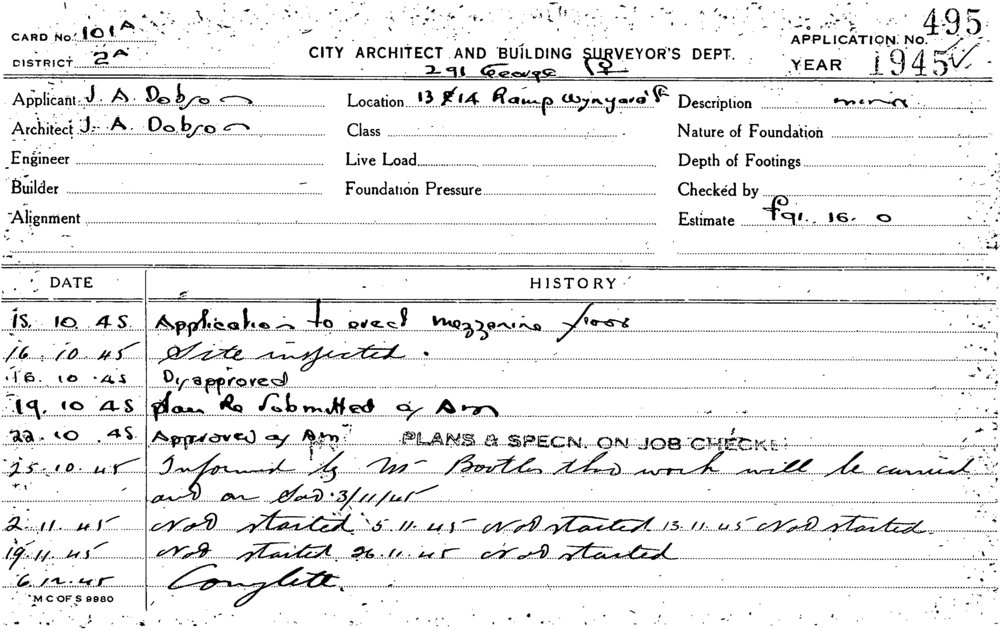 CARD No. 101A
DISTRICT 2A
CITY ARCHITECT AND BUILDING SURVEYOR'S DEPT.
291 George St
APPLICATION No. 495
YEAR 1945
Applicant J. A. Dobson Location 13 & 14 Ramp Wynyard Description minor
Architect J. A. Dobson Class Nature of Foundation
Engineer Live Load Depth of Footings
Builder Foundation Pressure Checked by
Alignment Estimate £91. 16. 0
DATE HISTORY
15. 10. 45 Application to erect mezzanine floor
16. 10. 45 Site inspected.
16. 10. 45 Disapproved
19. 10 45 plan Re Submitted
22. 10. 45 Approved PLANS & SPECN. ON JOB CHECKE
25. 10. 45 Informed by Mr Bootles the work will be carried
out on Sat. 3/11/45
2. 11. 45 Not started 5. 11. 45 Not started 13. 11. 45 Not started
19. 11. 45 Not started 26. 11. 45 Not started
6. 12. 45 Complete.
M C OF S 9980